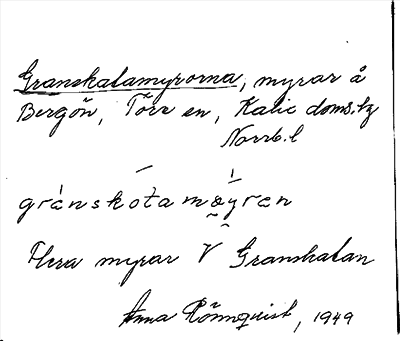 Granskatamyrorna, myrar å
Bergön, Töre sn, Kalix doms.tg
Norrb.l
gránskòtamøyren
Flera myrar V Granskatan
Anna Rönnquist, 1949